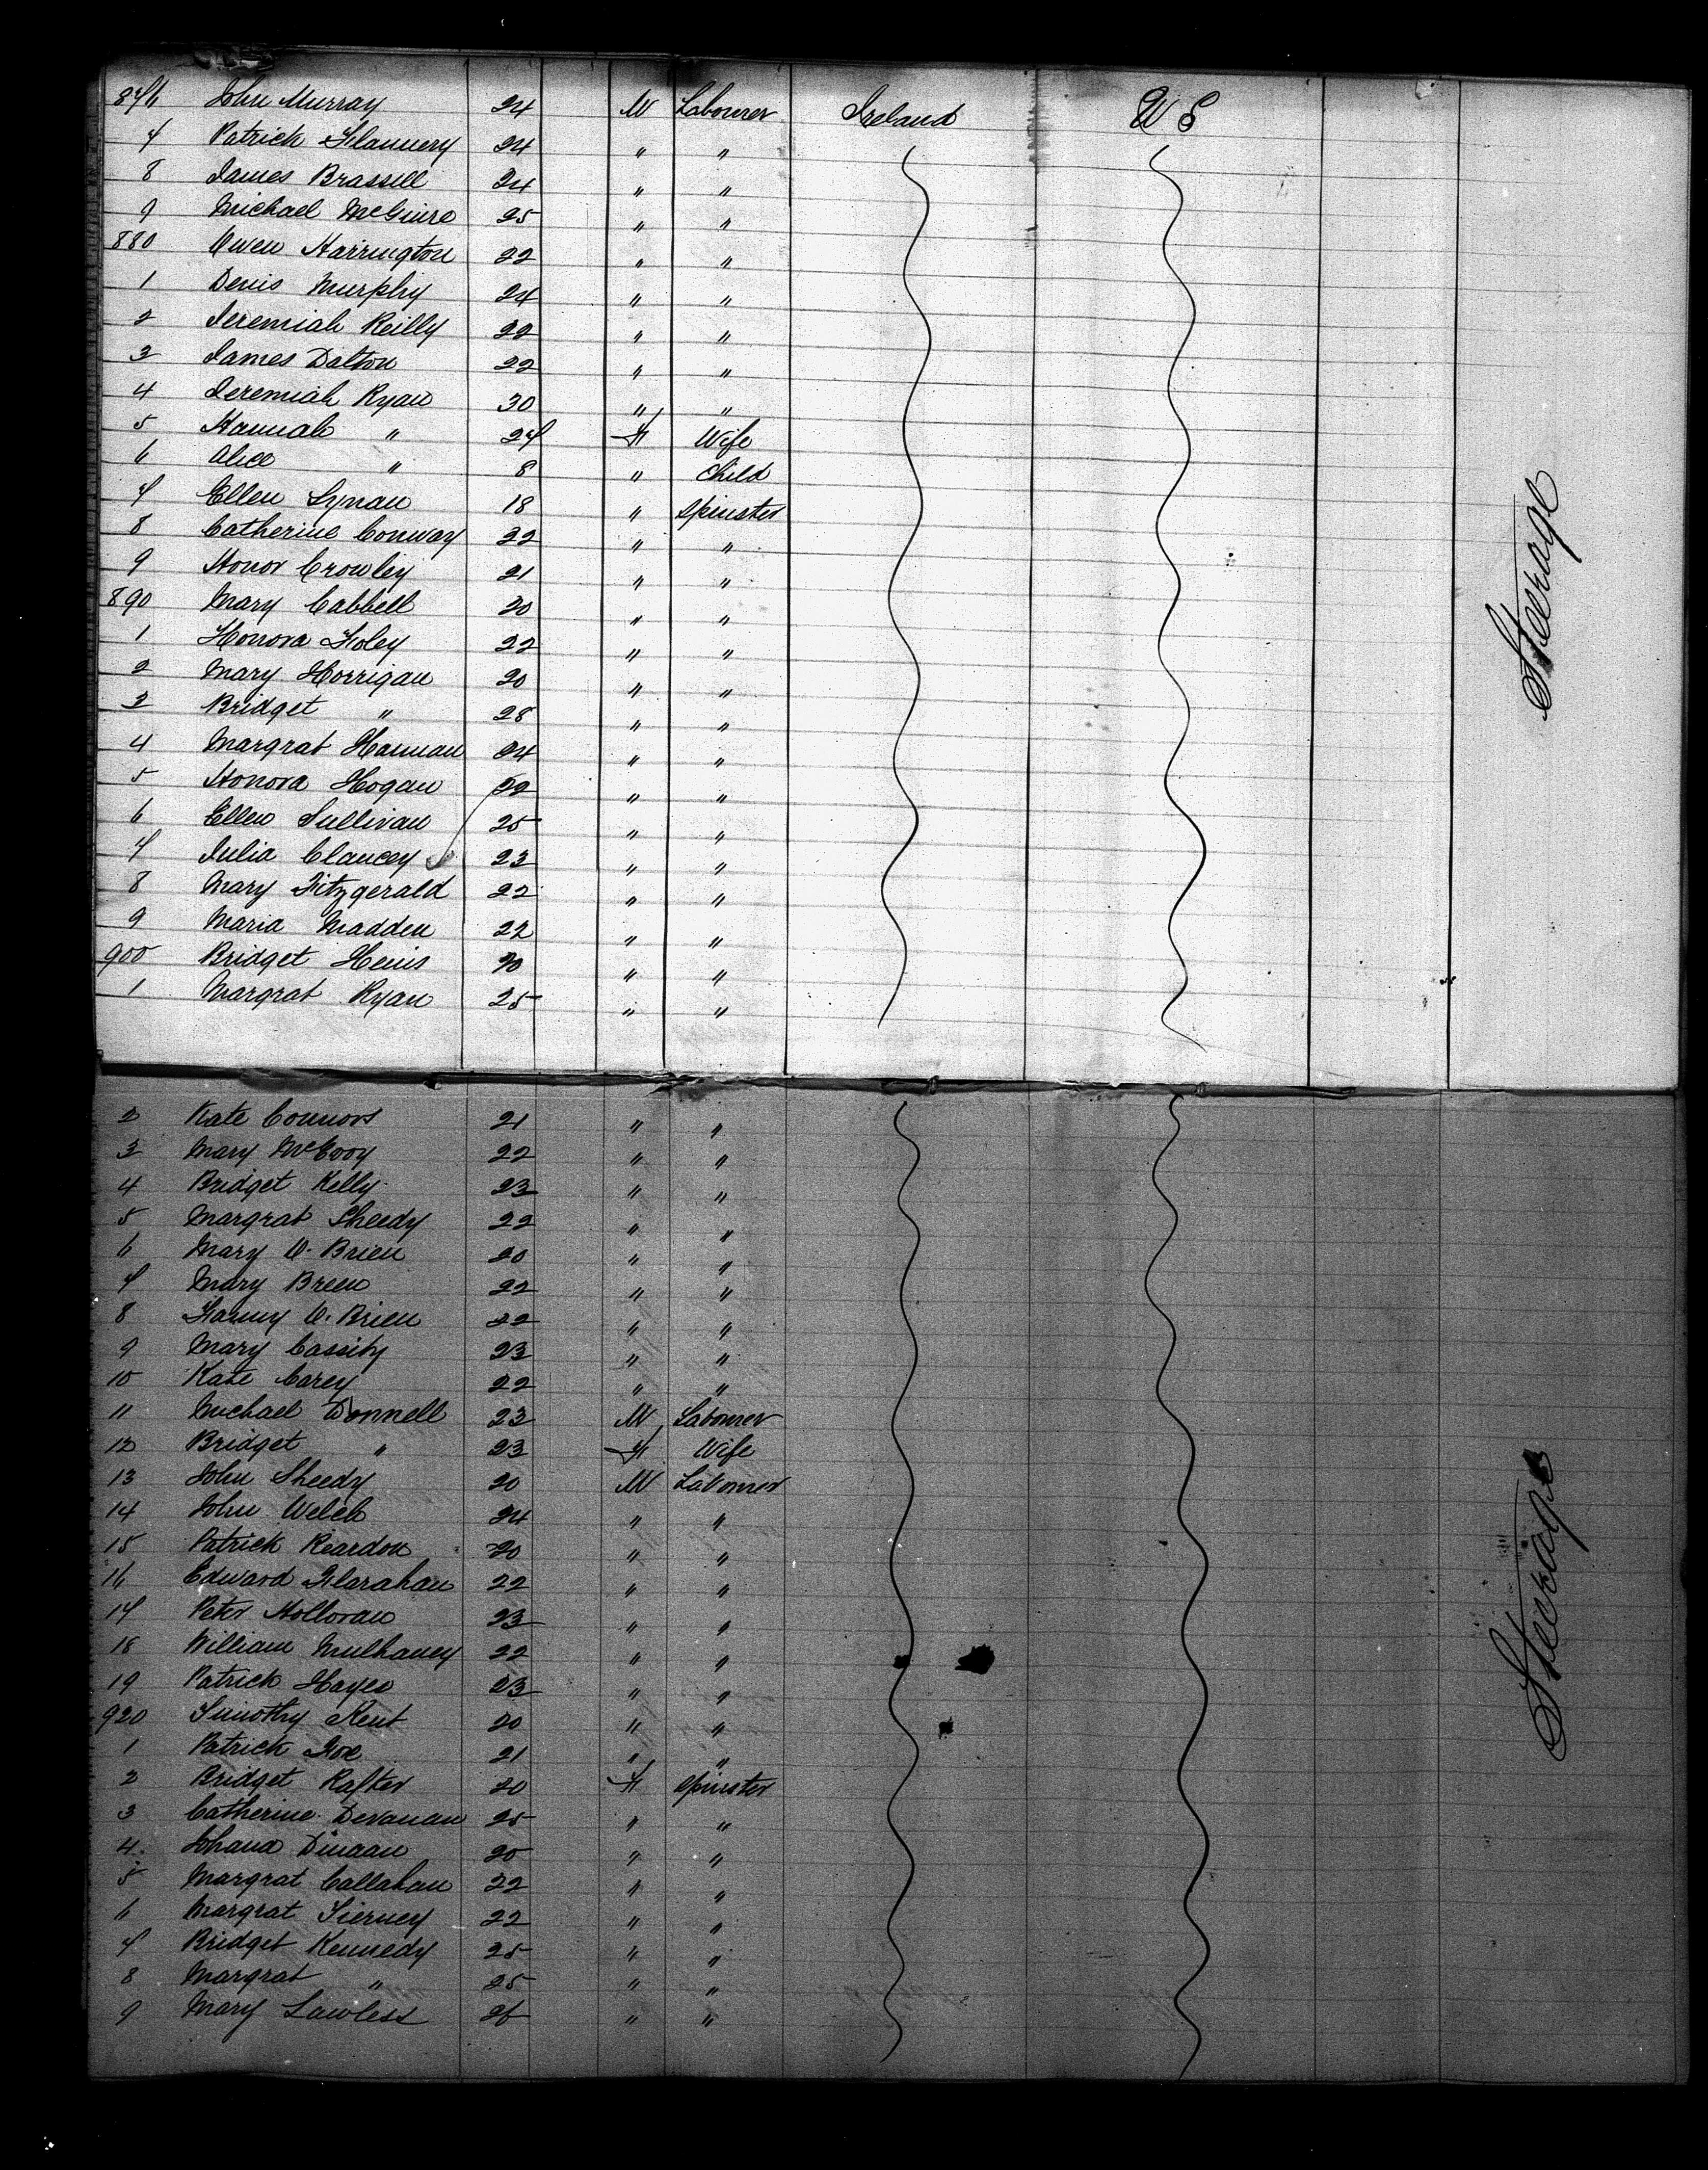 876 John Murray 24 M Labourer Ireland U S
7 Patrick Flannery 24 " "
8 James Brassell 24 " "
9 Michael McGuire 25 " "
880 Owen Harrington 22 " "
1 Denis Murphy 24 " "
2 Jeremiah Reilly 22 " "
3 James Dalton 22 " "
4 Jeremiah Ryan 30 " "
5 Hannah " 27 F Wife
6 Alice " 8 " Child
7 Ellen Lynan 18 " Spinster
8 Catherine Conway 22 " "
9 Honor Crowley 21 " "
890 Mary Cabbell 20 " "
1 Honora Foley 22 " "
2 Mary Horrigan 20 " "
3 Bridget " 28 " "
4 Margrat Hannan 24 " "
5 Honora Hogan 22 " "
6 Ellen Sullivan 25 " "
7 Julia Clancey 23 " "
8 Mary Fitzgerald 22 " "
9 Maria Madden 22 " "
900 Bridget Heins 20 " "
1 Margrat Ryan 25 " "
Steerage
2 Kate Connors 21 " "
3 Mary McEvoy 22 " "
4 Bridget Kelly 23 " "
5 Margrat Sheedy 22 " "
6 Mary O. Brien 20 " "
7 Mary Breen 22 " "
8 Fanny O. Brien 22 " "
9 Mary Cassity 23 " "
10 Kate Carey 22 " "
11 Michael Donnell 23 M Labourer
12 Bridget " 23 F Wife
13 John Sheedy 20 M Labourer
14 John Welch 24 " "
15 Patrick Reardon 20 " "
16 Edward Flarahan 22 " "
17 Peter Holloran 23 " "
18 William Mulhaney 22 " "
19 Patrick Hayes 23 " "
920 Timothy Kent 20 " "
1 Patrick Fox 21 " "
2 Bridget Rafter 20 F Spinster
3 Catherine Devanan 25 " "
4 Johana Dinaan 20 " "
5 Margrat Callahan 22 " "
6 Margrat Tierney 22 " "
7 Bridget Kennedy 25 " "
8 Margrat " 25 " "
9 Mary Lawless 26 " "
Steerage